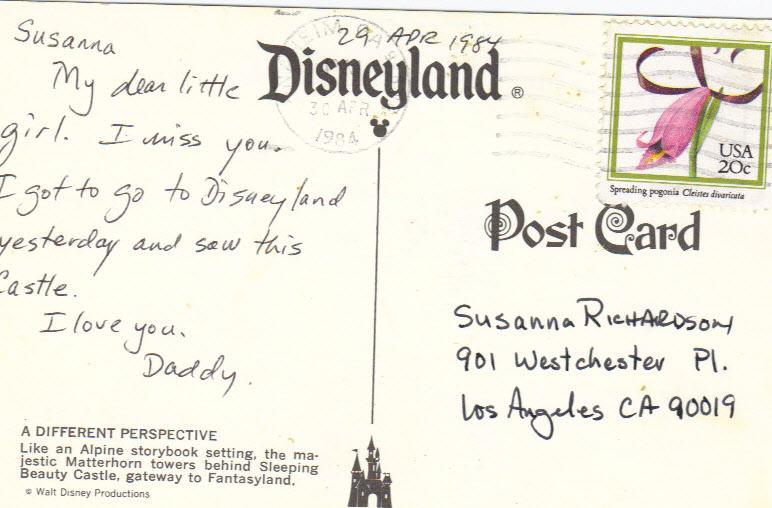 Susanna
My dear little
girl. I miss you.
I got to go to Disneyland
yesterday and saw this
Castle.
I love you.
Daddy.
A DIFFERENT PERSPECTIVE
Like an Alpine storybook setting, the ma-
jestic Matterhorn towers behind Sleeping
Beauty Castle, gateway to Fantasyland.
© Walt Disney Productions
29 APR 1984
Disneyland®
30 APR
1984
USA
20c
Spreading pogonia Cleistes divaricata
Post Card
Susanna RICHARDSON
901 Westchester Pl.
Los Angeles CA 90019